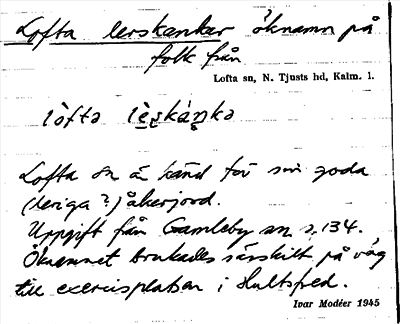 Lofta lerskankar öknamn på
folk från
Lofta sn, N. Tjusts hd, Kalm. l.
lòftə lèṣkáŋkə
Lofta sn är känd för sin goda
(leriga?) åkerjord.
Uppgift från Gamleby sn s. 134.
Öknamnet brukades särskilt på väg
till exercisplatsen i Hultsfred.
Ivar Modéer 1945